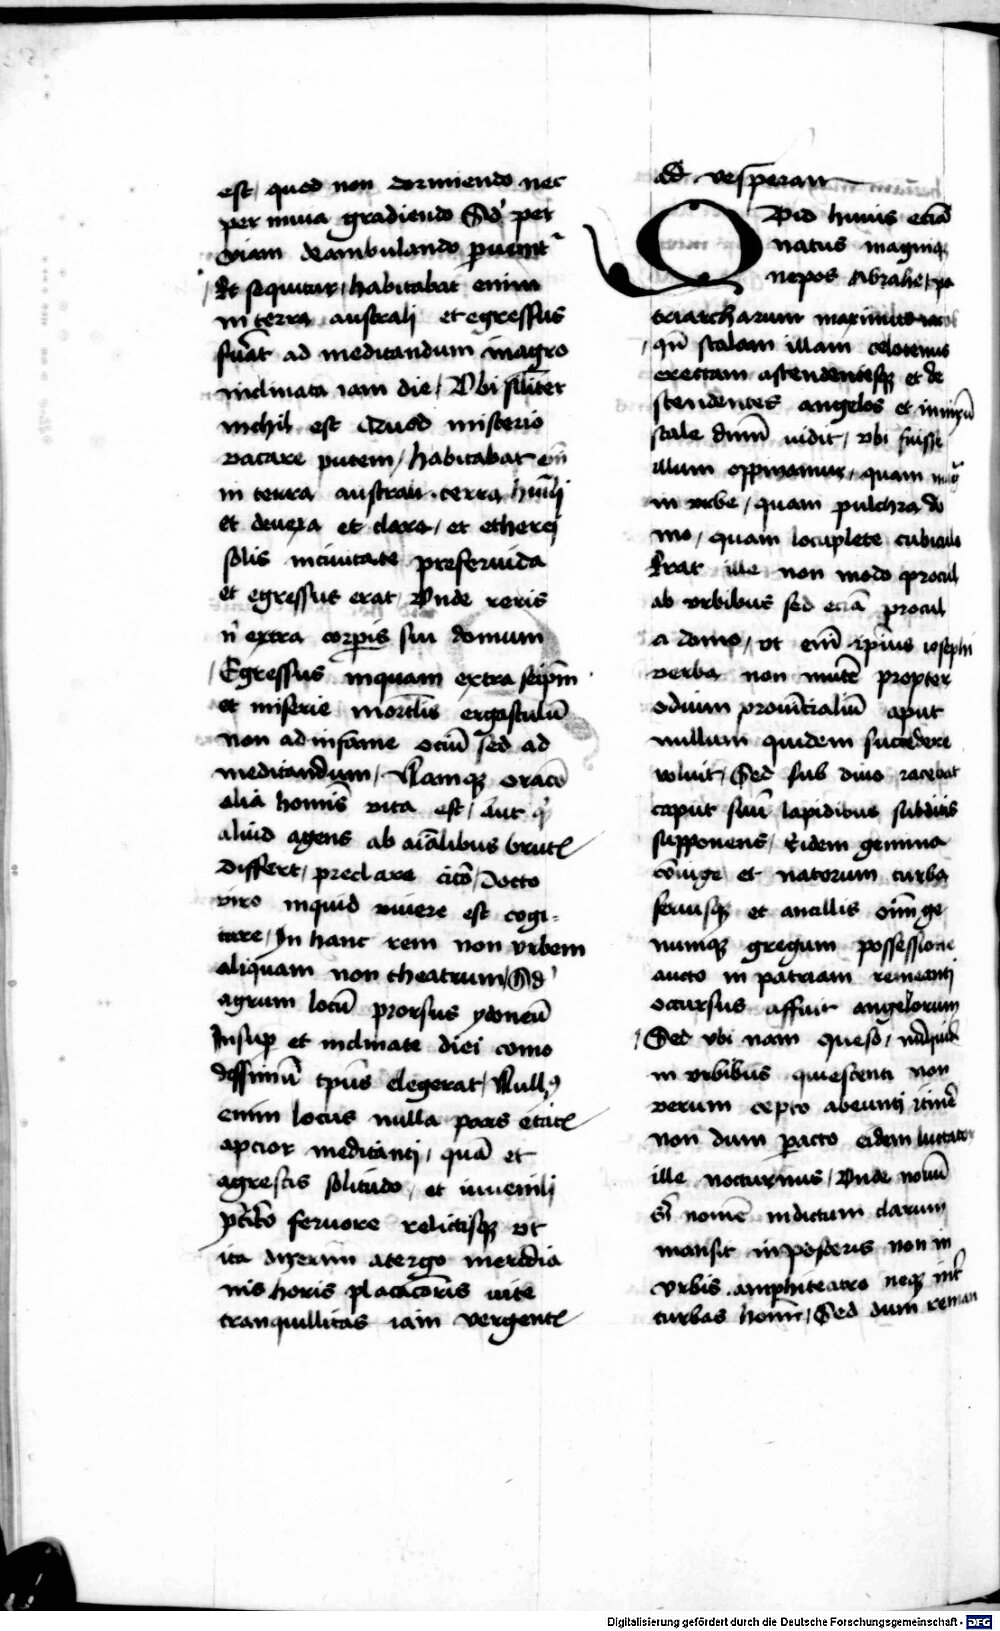 est / quod non dormiendo nec
per inuia gradiendo Sed per
viam deambulando puenit
Et sequitur / habitabat enim
in terra australi et egressus
fuat ad meditandum inagro
inclinata iam die / Vbi siliter
nichil est Quod misterio
vacare putem / habitabat eni
in terra australi . terra huili
et deuexa et clara / et etherei
solis inciuitate preferuida
et egressus erat / Vnde reris
ni extra corpis sui domum
Egressus inquam extra seipm
et miserie mortlis ergastulu
non ad infame ociu sed ad
meditandum / Namq oraco
alia homis vita est / aut qd
aliud agens ab aialibus brutis
Differt / preclare cico / Docto
viro inquid viuere est cogi=
tare / In hanc rem non vrbem
aliquam non theatrum / Sed
agrum locu prorsus ydoneu
Insup et inclinate diei como
dissimu tpus elegerat / Nullus
enim locus nulla pars etatis
apcior meditanti / qua et
agrestis solitudo / et iuuenili
feruore relictisq vt
ita dixerim atergo meridia
nis horis placacoris uite
tranquillitas iam vergentis
ad vesperam
QVid huius ecia
natus magniq
nepos Abrahe / pa
triarcharum maximus
qn scalam illam celotenus
erectam ascendentesq et de
scendentes angelos et innixu
scale dnm uidit / vbi fuisse
illum oppinamur / quam
in vrbe / quam pulchra do
mo / quam locuplete cubiculo
Erat ille non modo procul
ab vrbibus sed ecia procul
a domo / vt eni ipsius iosephi
verba non mute propter
odium prouincialiu aput
nullum quidem succedere
voluit / Sed sub diuo iacebat
caput suu lapidibus subdiuis
supponens / Eidem gemina
coniuge et natorum turba
seruisq et ancillis omige
numq gregum possessione
aucto in patriam remeanti
occursus affuit angelorum
Sed vbi nam queso / nunquid
in vrbibus quiescenti non
verum cepto abeunti itine
non dum pacto eidem luctator
ille nocturnus / Vnde nouu
nome indictum clarum
mansit inposteris non in
vrbis . amphiteatro neq int
turbas homi / Sed dum reman
Digitalisierung gefördert durch die Deutsche Forschungsgemeinschaft - DFG